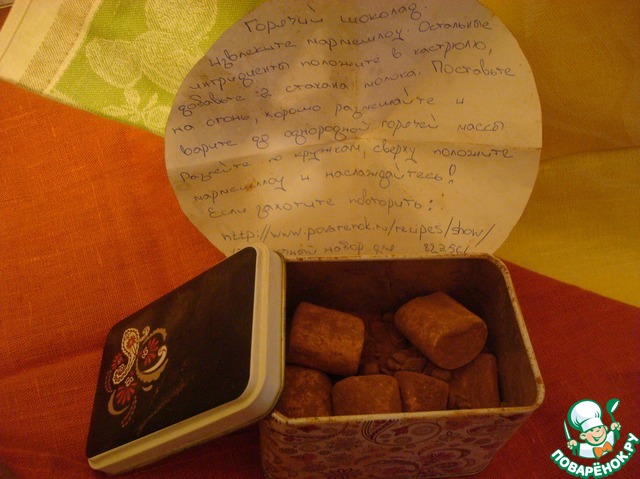 Горячий шоколад.
Извлеките маршмеллоу. Остальные
ингридиенты положите в кастрюлю,
добавьте 2 стакана молока. Поставьте
на огонь, хорошо размешайте и
варите до однородной горячей массы
Разлейте по кружкам, сверху положите
маршмеллоу и наслаждайтесь!
Если захотите повторить:
http://www.povarenok.ru/recipes/show/
набор для
ПОВАРЁНОК.РУ